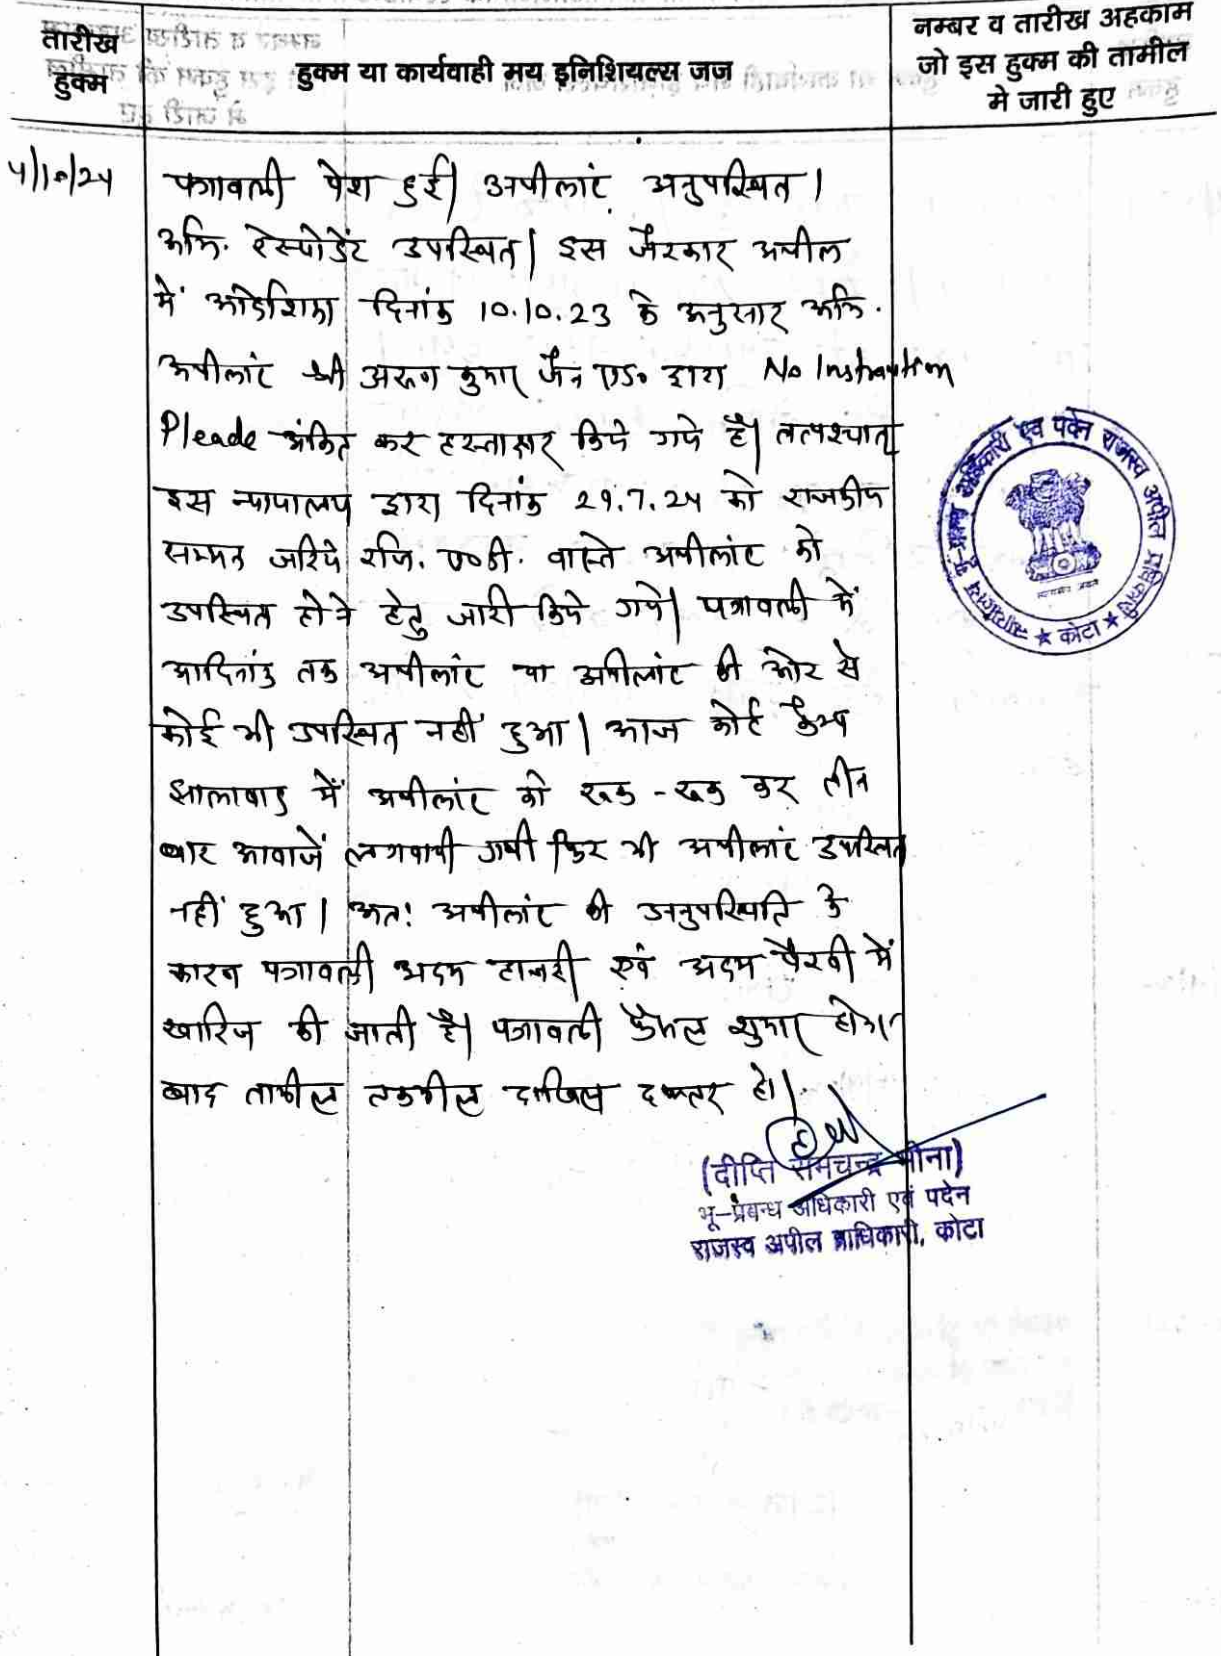 तारीख
हुक्म
हुक्म या कार्यवाही मय इनिशियल्स जज
नम्बर व तारीख अहकाम
जो इस हुक्म की तामील
मे जारी हुए
4/10/24
पत्रावली पेश हुई। अपीलांट अनुपस्थित।
अभि. रेस्पोडेंट उपस्थित। इस जैरकार अपील
में आदेशिका दिनांक 10.10.23 के अनुसार अभि.
अपीलांट श्री अरुण कुमार जैन एड० द्वारा No Instruction
Pleade अंकित कर हस्ताक्षर किये गये है। तत्पश्चात
इस न्यायालय द्वारा दिनांक 29.7.24 को राजकीय
सम्मन जरिये रजि. ए०डी. वास्ते अपीलांट को
उपस्थित होने हेतु जारी किये गये। पत्रावली में
आदिनांक तक अपीलांट या अपीलांट की ओर से
कोई भी उपस्थित नहीं हुआ। आज कोर्ट कैम्प
झालावाड में अपीलांट को रूक-रूक कर तीन
बार आवाजें लगवायी गयी फिर भी अपीलांट उपस्थित
नहीं हुआ। अतः अपीलांट की अनुपस्थिति के
कारण पत्रावली अदम हाजरी एवं अदम पैरवी में
खारिज की जाती है। पत्रावली फैसल शुमार होकर
बाद तामील तकमील दाखिल दफ्तर हो।
(दीप्ति रामचन्द्र मीना)
भू-प्रबन्ध अधिकारी एवं पदेन
राजस्व अपील प्राधिकारी, कोटा
न्यायालय भू-प्रबन्ध अधिकारी एवं पदेन राजस्व अपील प्राधिकारी ★ कोटा ★